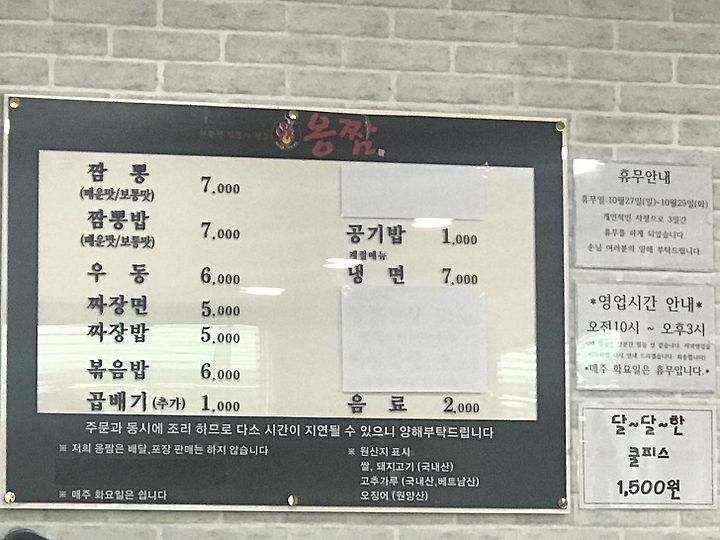 옹짬
짬 뽕 7,000
(매운맛/보통맛)
짬뽕밥 7,000
(매운맛/보통맛)
우 동 6,000
짜장면 5,000
짜장밥 5,000
볶음밥 6,000
곱배기(추가) 1,000
공기밥 1,000
계절메뉴
냉 면 7,000
음 료 2,000
주문과 동시에 조리 하므로 다소 시간이 지연될 수 있으니 양해부탁드립니다
※ 저희 옹짬은 배달,포장 판매는 하지 않습니다
※ 매주 화요일은 쉽니다
※ 원산지 표시
쌀, 돼지고기 (국내산)
고추가루 (국내산,베트남산)
오징어 (원양산)
휴무안내
휴무일:10월27일(일)~10월29일(화)
개인적인 사정으로 3일간
휴무를 하게 되었습니다.
손님 여러분의 양해 부탁드립니다
*영업시간 안내*
오전10시 ~ 오후3시
*매주 화요일은 휴무입니다.*
달~달~한
쿨피스
1,500원